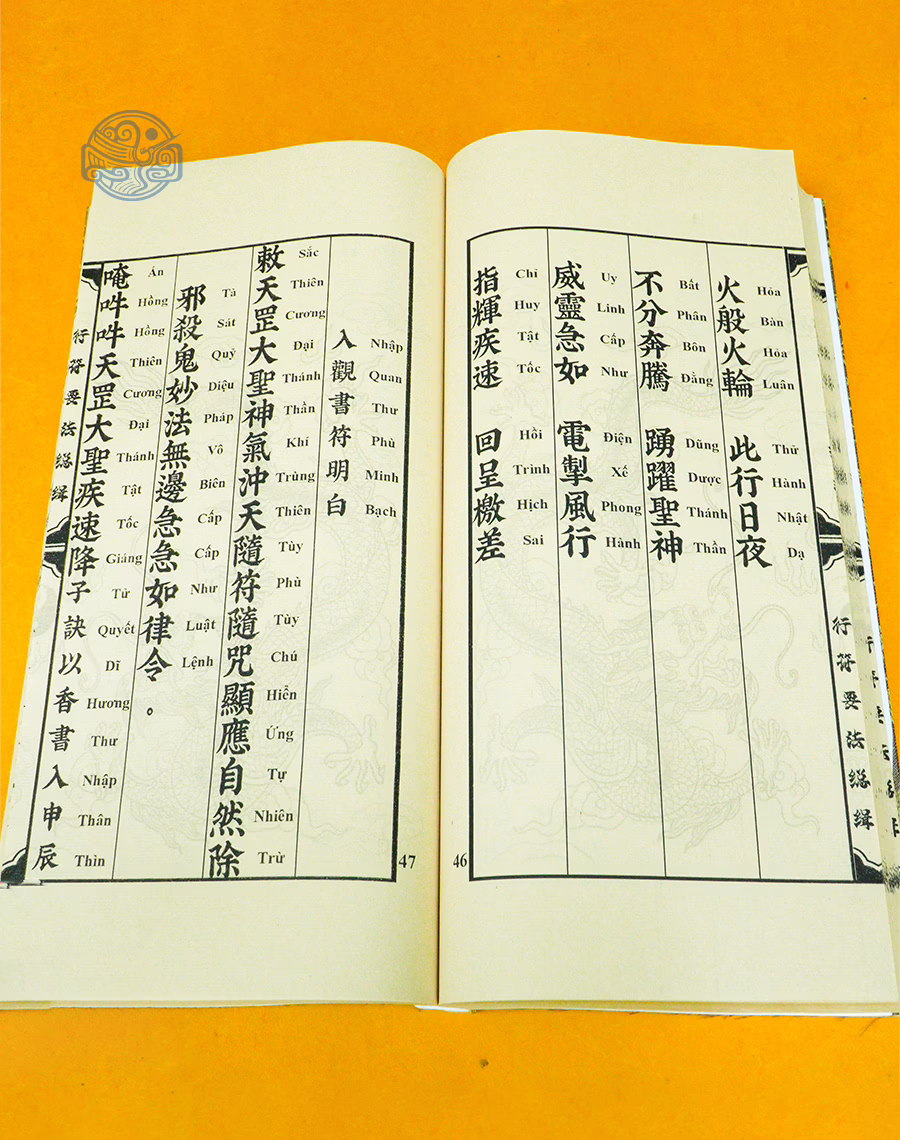 行符要法總緝
火般火輪 此行日夜
Hỏa Bàn Hỏa Luân Thử Hành Nhật Dạ
不分奔騰 踴躍聖神
Bất Phân Bôn Đằng Dũng Dược Thánh Thần
威靈急如 電掣風行
Uy Linh Cấp Như Điện Xế Phong Hành
指輝疾速 回呈檄差
Chỉ Huy Tật Tốc Hồi Trình Hịch Sai
46
入觀書符明白
Nhập Quan Thư Phù Minh Bạch
敕天罡大聖神氣沖天隨符隨咒顯應自然除
Sắc Thiên Cương Đại Thánh Thần Khí Trùng Thiên Tùy Phù Tùy Chú Hiển Ứng Tự Nhiên Trừ
邪殺鬼妙法無邊急急如律令。
Tà Sát Quỷ Diệu Pháp Vô Biên Cấp Cấp Như Luật Lệnh
唵吽吽天罡大聖疾速降子訣以香書入申辰
Án Hồng Hồng Thiên Cương Đại Thánh Tật Tốc Giáng Tử Quyết Dĩ Hương Thư Nhập Thân Thìn
行符要法總緝
47